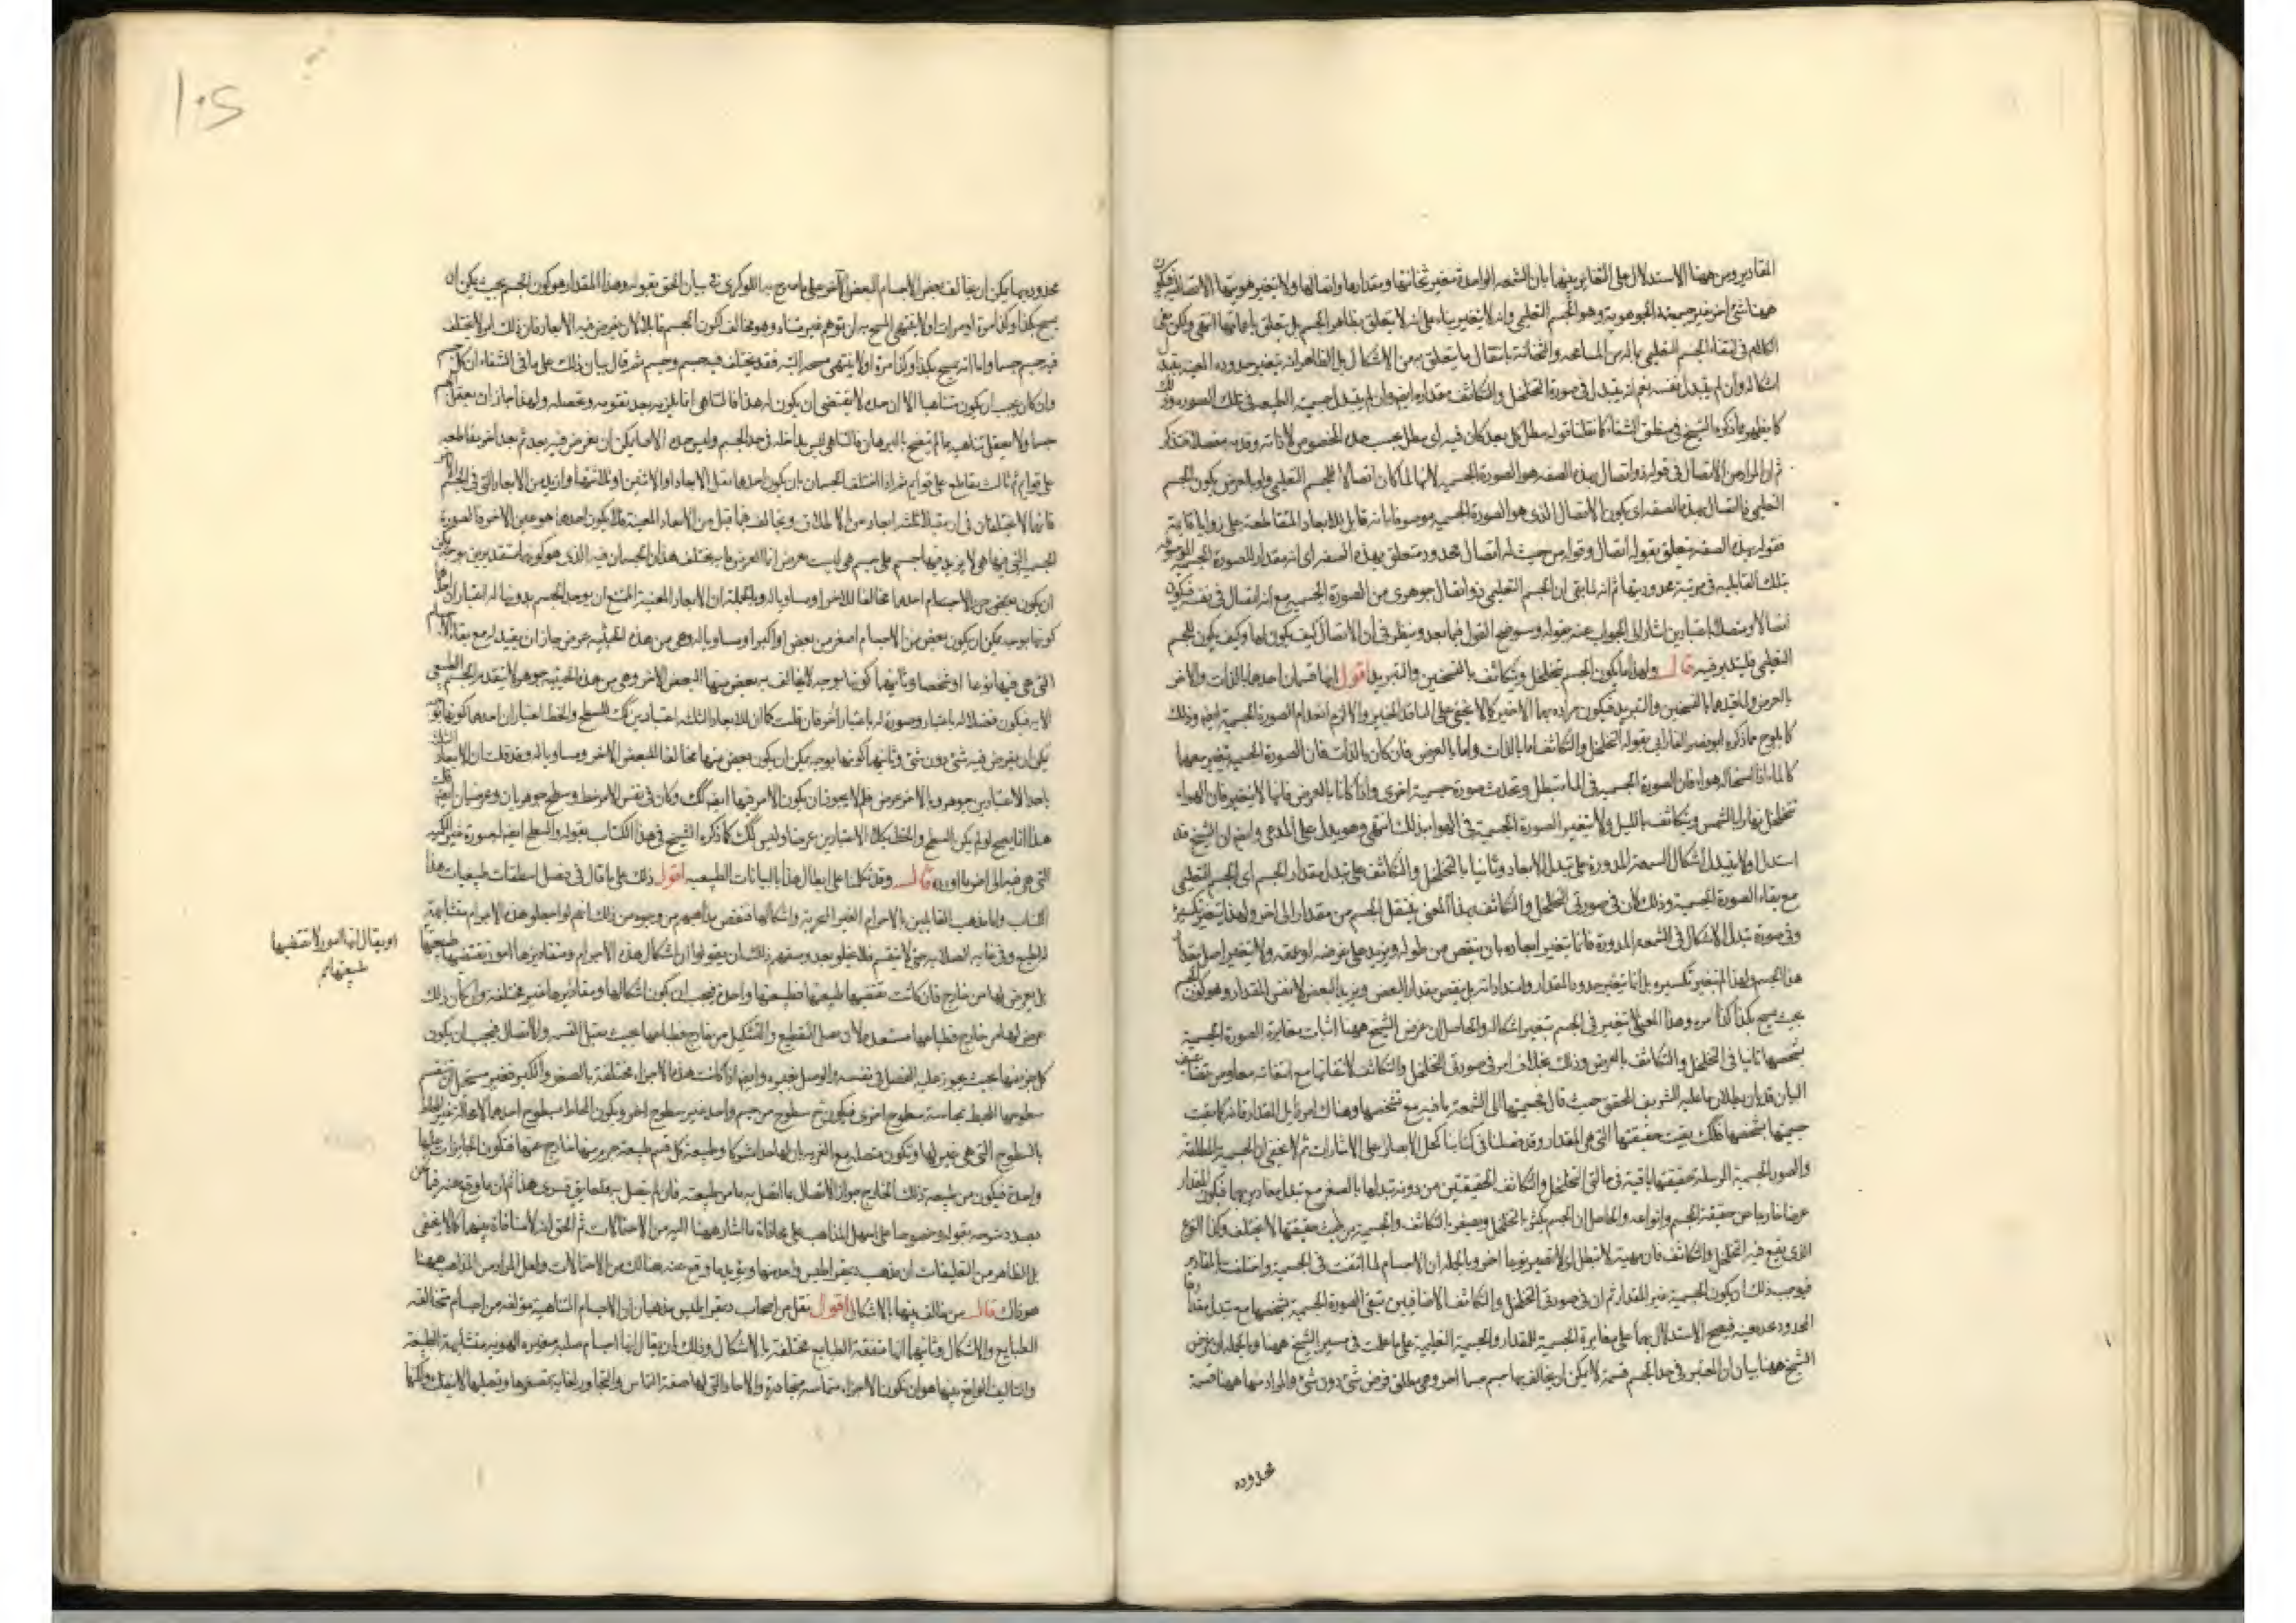 المقادير ومن ههنا الاستدلال على التغاير بينهما بان الشمعة الواحدة متغير ثخانتها ومقدارها واتصالها ولا يتغير هويتها الاتصالية فيكون
ههنا شئ اخر غير جسميته الجوهرية وهو الجسم التعليمى وانه لا يتغير بناء على انه لا يتعلق بظاهر الجسم بل يتعلق باعماقها انتهى ولكن بقى
الكلام فى ابقاء الجسم التعليمى والثخانة بانتقال ما يتعلق به من الاشكال بل الظاهر انه بتغير حدوده المعينة يتبدل
اشكاله وان لم يتبدل نفسه نعم انه يتبدل فى صورة التخلخل والتكاثف مقداره ايضا وان لم يتبدل جسميته الطبيعية فى تلك الصورة وذلك
كما يظهر مما ذكره الشيخ فى منطق الشفاء كما نقلنا قوله مطل كل بعد كان فيه اى مطل بحسب حده المخصوص لا ذاته وقد مر مفصلا فتذكر
ثم ان المراد من الاتصال فى قوله ذو اتصال بهذه الصفة هو الصورة الجسمية لانها لما كان اتصالا للجسم التعليمى ولو بالعرض يكون الجسم
التعليمى ذا اتصال بهذه الصفة اى يكون الاتصال الذى هو الصورة الجسمية موصوفا بانه قابل للابعاد المتقاطعة على زوايا قائمة
فقوله بهذه الصفة متعلق بقوله اتصال وقوله من حيث له اتصال محدود متعلق بهذه الصفة اى انه مقدار للصورة الجسمية الموصوفة
بتلك القابلية فى مرتبة محدوديتها ثم انه لما بقى ان الجسم التعليمى ذو اتصال جوهرى من الصورة الجسمية مع انه اتصال فى نفسه فيكون
اتصالا ومتصلا باعتبارين اشار الى الجواب عنه بقوله وسنوضح القول فيما بعد وننظر فى ان الاتصال كيف يكون لها وكيف يكون للجسم
التعليمى فليتدبر فيه قال ولهذا ما يكون الجسم يتخلخل ويتكاثف بالتسخين والتبريد اقول انهما قسمان احدهما بالذات والاخر
بالعرض ولما قيدهما بالتسخين والتبريد فيكون مراده بهما الاخيرين كما لا يخفى على الناقد الخبير والا لزم انعدام الصورة الجسمية ايضا وذلك
كما يلوح مما ذكره ابو نصر الفارابى بقوله التخلخل والتكاثف اما بالذات واما بالعرض فان كان بالذات فان الصورة الجسمية يتغير معهما
كالماء اذا استحال هواء فان الصورة الجسمية فى الماء تبطل وتحدث صورة جسمية اخرى واذا كانا بالعرض فانها لا يتغير فان الهواء
يتخلخل نهارا بالشمس ويتكاثف بالليل ولا يتغير الصورة الجسمية فى الهواء بذلك انتهى وهو يدل على المدعى وايضا ان الشيخ قد
استدل اولا بتبدل اشكال الشمعة المدورة على تبدل الابعاد وثانيا بالتخلخل والتكاثف على تبدل مقدار الجسم اى الجسم التعليمى
مع بقاء الصورة الجسمية وذلك لان فى صورتى التخلخل والتكاثف بهذا المعنى ينتقل الجسم من مقدار الى اخر ولهذا يتغير تكسيره
وفى صورة تبدل الاشكال فى الشمعة المدورة فانما يتغير ابعاده بان ينقص من طوله ويزيد على عرضه او عمقه ولا يتغير اصل مقدار
هذا الجسم ولهذا لم يتغير تكسيره بل انما يتغير حدود المقدار وامتداداته بل ينقص مقدار البعض ويزيد البعض لا نفس المقدار وهو كون الجسم
بحيث يمسح بكذا كذا مرة وهذا المعنى لا يتغير فى الجسم بتغير اشكاله والحاصل ان غرض الشيخ ههنا اثبات مغايرة الصورة الجسمية
بشخصها ثانيا فى التخلخل والتكاثف بالعرض وذلك بخلاف امر فى صورتى التخلخل والتكاثف
البيان قد بان بطلان ما عليه الشريف المحقق حيث قال جسميتها الى الشمعة باقية مع تشخصها وهناك امر زايل المقدار فانه كما بقيت
جسميتها بشخصها كذلك بقيت حقيقتها التى هى المقدار وقد فصلنا فى كتابنا كحل الابصار على الاشارات ثم لا يخفى ان الجسمية المطلقة
والصور الجسمية المرسلة حقيقتها باقية فى حالتى التخلخل والتكاثف الحقيقيتين من دون تبدلها بالصغر مع تبدل مقاديرهما فيكون المقدار
عرضا خارجا من حقيقة الجسم وانواعه والحاصل ان الجسم يكثر بالتخلخل ويصغر بالتكاثف والجسمية من حيث حقيقتها لا يختلف وكذا النوع
الذى يقع فيه التخلخل والتكاثف فان مهيته لا تبطل اى لا تصير نوعا اخر وبالجملة ان الاجسام لما اتفقت فى الجسمية واختلفت بالمقادير
فيوجب ذلك ان يكون الجسمية غير المقدار ثم ان فى صورتى التخلخل والتكاثف الاضافيين تبقى الصورة الجسمية بشخصها مع تبدل مقدارها
المحدود بعينه فيصح الاستدلال بهما على مغايرة الجسمية للمقدار والجسمية التعليمية على ما علمت فى مسير الشيخ ههنا وبالجملة ان غرض
الشيخ ههنا بيان ان المعتبر فى حد الجسم قسمة لا يمكن ان يخالف بها جسم جسما اخر وهى مطلق فرض شئ دون شئ والمراد منها ههنا قسمة
محدوده
محدودة بما يمكن ان يخالف بعض الاجسام البعض الآخر على ما صرح به اللوكرى فى بيان الحق بقوله وهذا المقدار هو كون الجسم بحيث يمكن ان
يمسح بكذا وكذا مرة او مرات او لا ينتهى المسح به ان توهم غير متناه وهو مخالف لكون الجسم قابلا لان يفرض فيه الابعاد فان ذلك امر لا يختلف
فيه جسم جسما واما انه يمسح بكذا وكذا مرة او لا ينتهى مسحه البتة فقد يختلف فيه جسم وجسم ثم قال بيان ذلك على ما فى الشفاء ان كل جسم
وان كان يجب ان يكون متناهيا الا ان حده لا يقتضى ان يكون له هذا فالتناهى انما يلزمه بعد تقومه وتحصله ولهذا جاز ان يعقل الجسم
جسما ولا يعقل تناهيه ما لم يتضح بالبرهان فالتناهى ليس بداخل فى حد الجسم وليس حده الا ما يمكن ان يفرض فيه بعد ثم بعد آخر مقاطعه
على قوائم ثم ثالث يقاطع على قوائم فاذا اختلف الجسمان بان يكون احدهما يقبل الابعاد او الاثنين او ثلاثتها وازيد من الابعاد التى فى الجسم الآخر
فانهما لا يختلفان فى ان يقبلا ثلثة ابعاد من الاطلاق ويخالف فيما قبل من الابعاد المعينة فلا يكون احدهما هو عين الآخر فالصورة
الجسمية التى فيها هى لا يزيد فيها جسم على جسم هى ليست بعرض انما العرض ما به يختلف هذان الجسمان فيه الذى هو كونهما متقدرين بوجه يمكن
ان يكون بعض من الاجسام احدهما مخالفا للاخر او مساويا له وبالجملة ان الابعاد المعينة الممتنع ان يوجد الجسم بدونها له اعتباران احدهما
كونها بوجه يمكن ان يكون بعض من الاجسام اصغر من بعض او اكبر او مساويا له وهى من هذه الحيثية عرض جاز ان يتبدل مع بقاء الاجسام
التى هى فيها نوعا او شخصا وثانيهما كونها بوجه لا يخالف به بعض منها البعض الاخر وهى من هذه الحيثية جوهر لا يتقدم الجسم الطبيعى
الا به فيكون فصلا له باعتبار وصورة له باعتبار اخر فان قلت كما ان للابعاد الثلثة اعتبارين كك للسطح والخط اعتباران احدهما كونهما بحيث
يمكن ان يفرض فيه شئ دون شئ وثانيهما كونهما بوجه يمكن ان يكون بعض منها مخالفا للبعض الاخر ومساويا له وقد قلت ان الابعاد الثلثة
باحد الاعتبارين جوهر وبالاخر عرض فلم لا يجوز ان يكون الامر فيهما ايضا كك وكان فى نفس الامر خط وسطح جوهريان وعرضيان ايضا قلت
هذا انما يصح لو لم يكن السطح والخط بكلا الاعتبارين عرضا وليس كك كما ذكره الشيخ فى هذا الكتاب بقوله والسطح ايضا له صورة غير الكمية
التى هى فيه الى اخر ما اورده قال وقد تكلمنا على ابطال هذا بالبيانات الطبيعية اقول ذلك على ما قال فى فصل من تعلقات طبيعيات هذا
الكتاب واما مذهب القايلين بالاجرام الغير المتجزية واشكالها فننقض مذاهبهم من وجوه من ذلك انهم لو جعلوا هذه الاجرام متشابهة
الطبع وفى غاية الصلابة حتى لا ينقسم فلا يخلو بعد وضعهم ذلك ان يقولوا ان اشكال هذه الاجرام ومقاديرها امور تقتضيها طبيعتها
او يقال انها امور لا تقتضيها
طبيعتها بم
بل يعرض لها من خارج فان كانت تقتضيها طبيعتها فطبيعتها واحدة فيجب ان يكون اشكالها ومقاديرها غير مختلفة وان كان ذلك
عرض لها من خارج فطباعها مستعدة لان تقبل التقطيع والتشكيل من خارج فطباعها بحيث يقبل القسمة والاتصال فيجب ان يكون
كل جزء منها بحيث يجوز عليه الفصل فى نفسه والوصل بغيره وايضا اذا كانت هذه الاجزاء مختلفة بالصغر والكبر فغير مستحيل ان تنقسم
سطوحها المحيط مماسة سطوح اخرى فيكون ثم سطوح من جسم واحد غير سطوح اخر ويكون المحاط بسطوح احدهما لا محالة غير المحاط
بالسطوح التى هى غيرها ويكون متصلة مع الغيرية بان لها حدا مشتركا وطبيعة كل قسم طبيعة جزء منها خارج عنها فتكون الجايزات عليها
واحدة فيكون من طبيعة ذلك الخارج جواز الاتصال بما اتصل به ما من طبيعته فان لم يتصل به فلعايق قسرى هذا ثم ان ما وقع عنه فيما نحن
بصدد شرحه بقوله وخصوصا على اسهل المذاهب على محاذاة ما اشار ههنا اليه من الاحتمالات ثم الحق انه لا منافاة بينهما كما لا يخفى
بل الظاهر من التعليقات ان مذهب ذيمقراطيس واحد منها ويؤيده ما وقع عنه هنالك من الاحتمالات ولعل المراد من المذاهب ههنا
هو ذاك قال من خالف بينها بالاشكال اقول نقل من اصحاب ذيمقراطيس مذهبان ان الاجسام المتناهية مؤلفة من اجسام متخالفة
الطبايع والاشكال وثانيهما انها متفقة الطبايع مختلفة بالاشكال وذلك ان يقال انها اجسام صلبة متغيرة الهوية متشابهة الطبيعة
والتاليف الواقع بينها هو ان يكون الاجزاء متماسة متجاورة والاحاد التى لها صفة التماس والتجاور لغاية صغرها وصلبها لا ينفك والتها